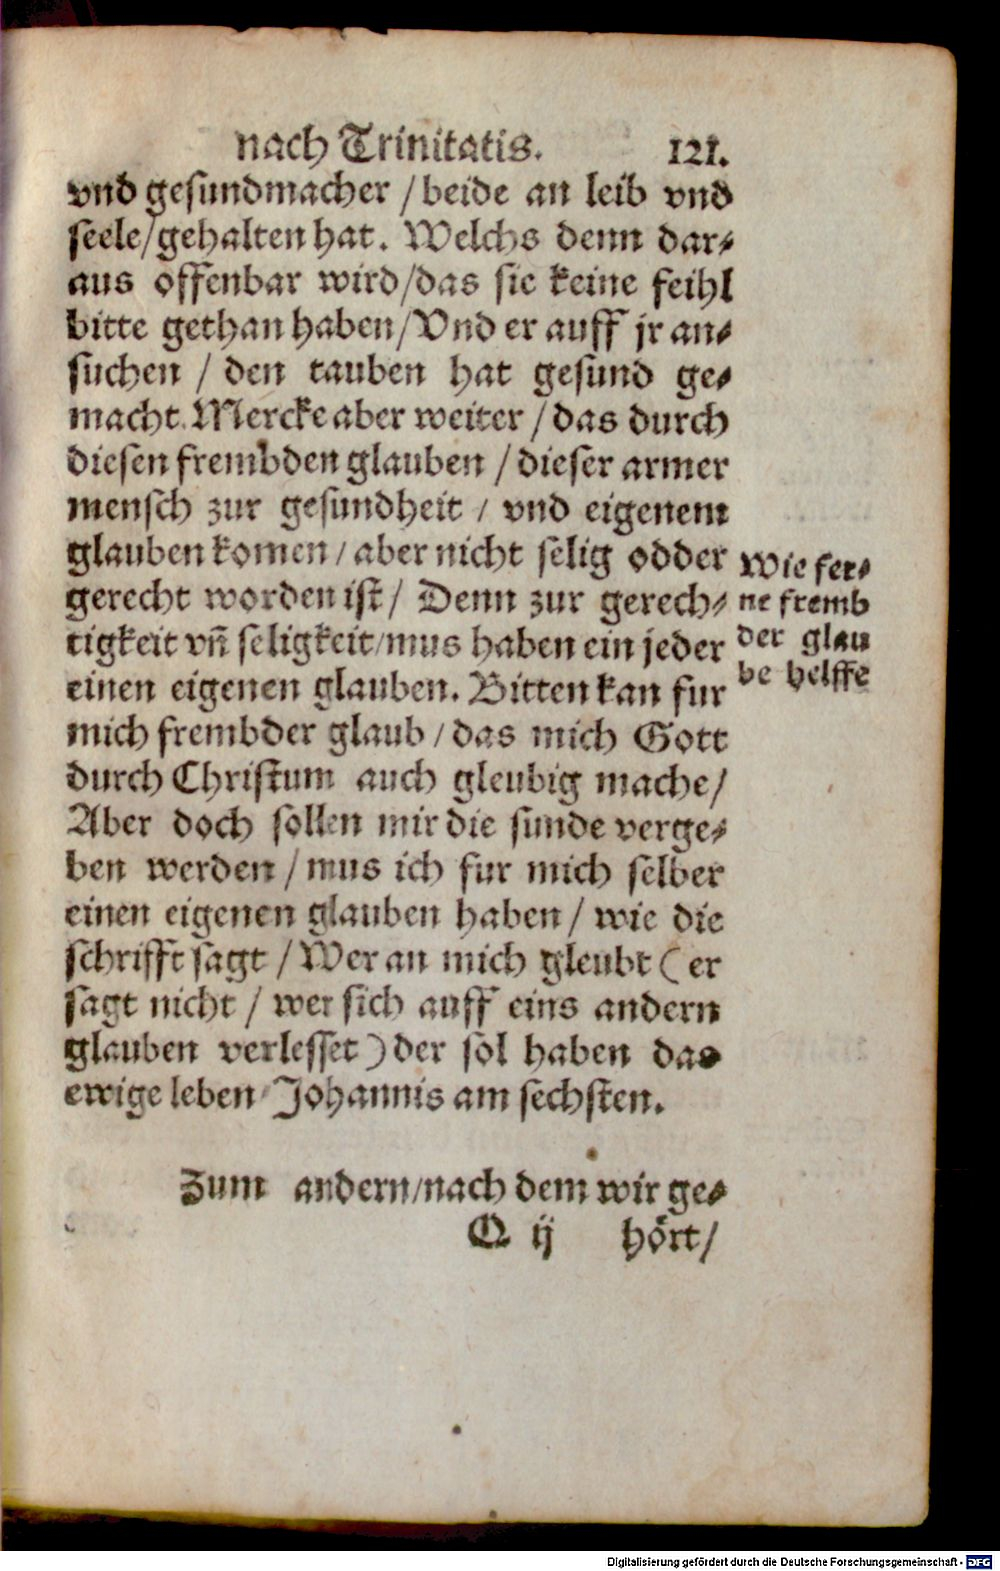 nach Trinitatis. 121.
vnd gesundmacher / beide an leib vnd
seele/gehalten hat. Welchs denn dar⸗
aus offenbar wird/das sie keine feihl
bitte gethan haben/Vnd er auff jr an⸗
suchen / den tauben hat gesund ge⸗
macht. Mercke aber weiter / das durch
diesen frembden glauben / dieser armer
mensch zur gesundheit / vnd eigenem
glauben komen / aber nicht selig odder
gerecht worden ist / Denn zur gerech⸗
tigkeit vñ seligkeit/mus haben ein jeder
einen eigenen glauben. Bitten kan fur
mich frembder glaub / das mich Gott
durch Christum auch gleubig mache/
Aber doch sollen mir die sunde verge⸗
ben werden / mus ich fur mich selber
einen eigenen glauben haben / wie die
schrifft sagt / Wer an mich gleubt ( er
sagt nicht / wer sich auff eins andern
glauben verlesset ) der sol haben das
ewige leben / Johannis am sechsten.
Wie fer⸗
ne fremb
der glau
be helffe
Zum andern/nach dem wir ge⸗
Q ij hört/
Digitalisierung gefördert durch die Deutsche Forschungsgemeinschaft - DFG